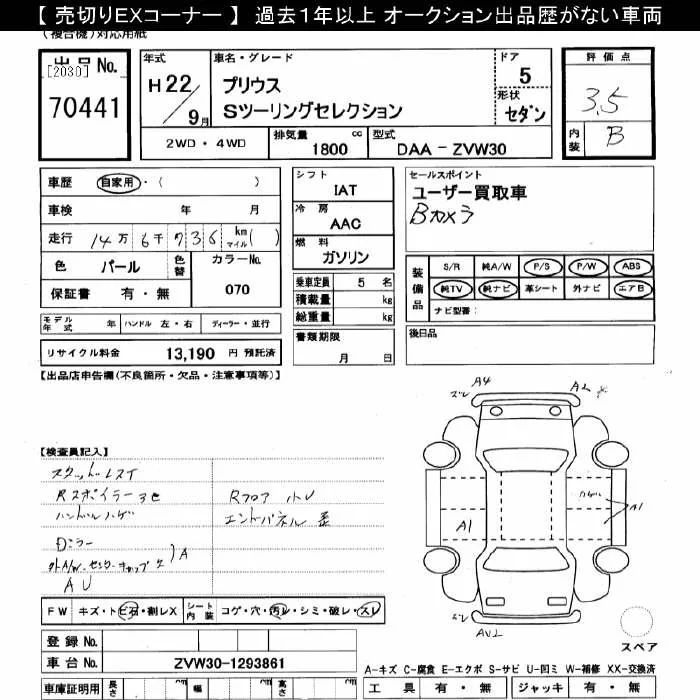 【 売切りEXコーナー 】 過去1年以上 オークション出品歴がない車両
(複合機)対応用紙
出品 No.
[2030]
70441
年式
H22/9月
車名・グレード
プリウス
Sツーリングセレクション
ドア
5
形状
セダン
評価点
3.5
内装
B
2WD・4WD
排気量
1800 cc
型式
DAA-ZVW30
車歴 自家用・( )
車検 年 月
走行 14万 6千 736 km マイル ( )
色 パール 色替
カラーNo.
070
保証書 有・無
シフト
IAT
冷房
AAC
燃料
ガソリン
乗車定員 5 名
積載量 kg
総重量 kg
セールスポイント
ユーザー買取車
Bカメラ
装備品
S/R 純A/W P/S P/W ABS
純TV 純ナビ 革シート 外ナビ エアB
ナビ型番:
モデル年式 年 ハンドル 左・右 ディーラー・並行
リサイクル料金 13,190 円 預託済
書類期限
月 日
後日品
【出品店申告欄(不良箇所・欠品・注意事項等)】
A4
A2
【検査員記入】
スタッドレスT
Rスポイラー3色
ハンドルハゲ
Dミラー
A
AU
RフロアhU
エンドパネル歪
A1
A1
AU2
FW キズ・トビ石・割レX
シート内装 コゲ・穴・汚レ・シミ・破レ・スレ
スペア
登録 No.
車台 No. ZVW30-1293861
A-キズ C-腐食 E-エクボ S-サビ U-凹ミ W-補修 XX-交換済
車庫証明用 長さ cm 幅 cm 高さ cm
工具 有・無 ジャッキ 有・無